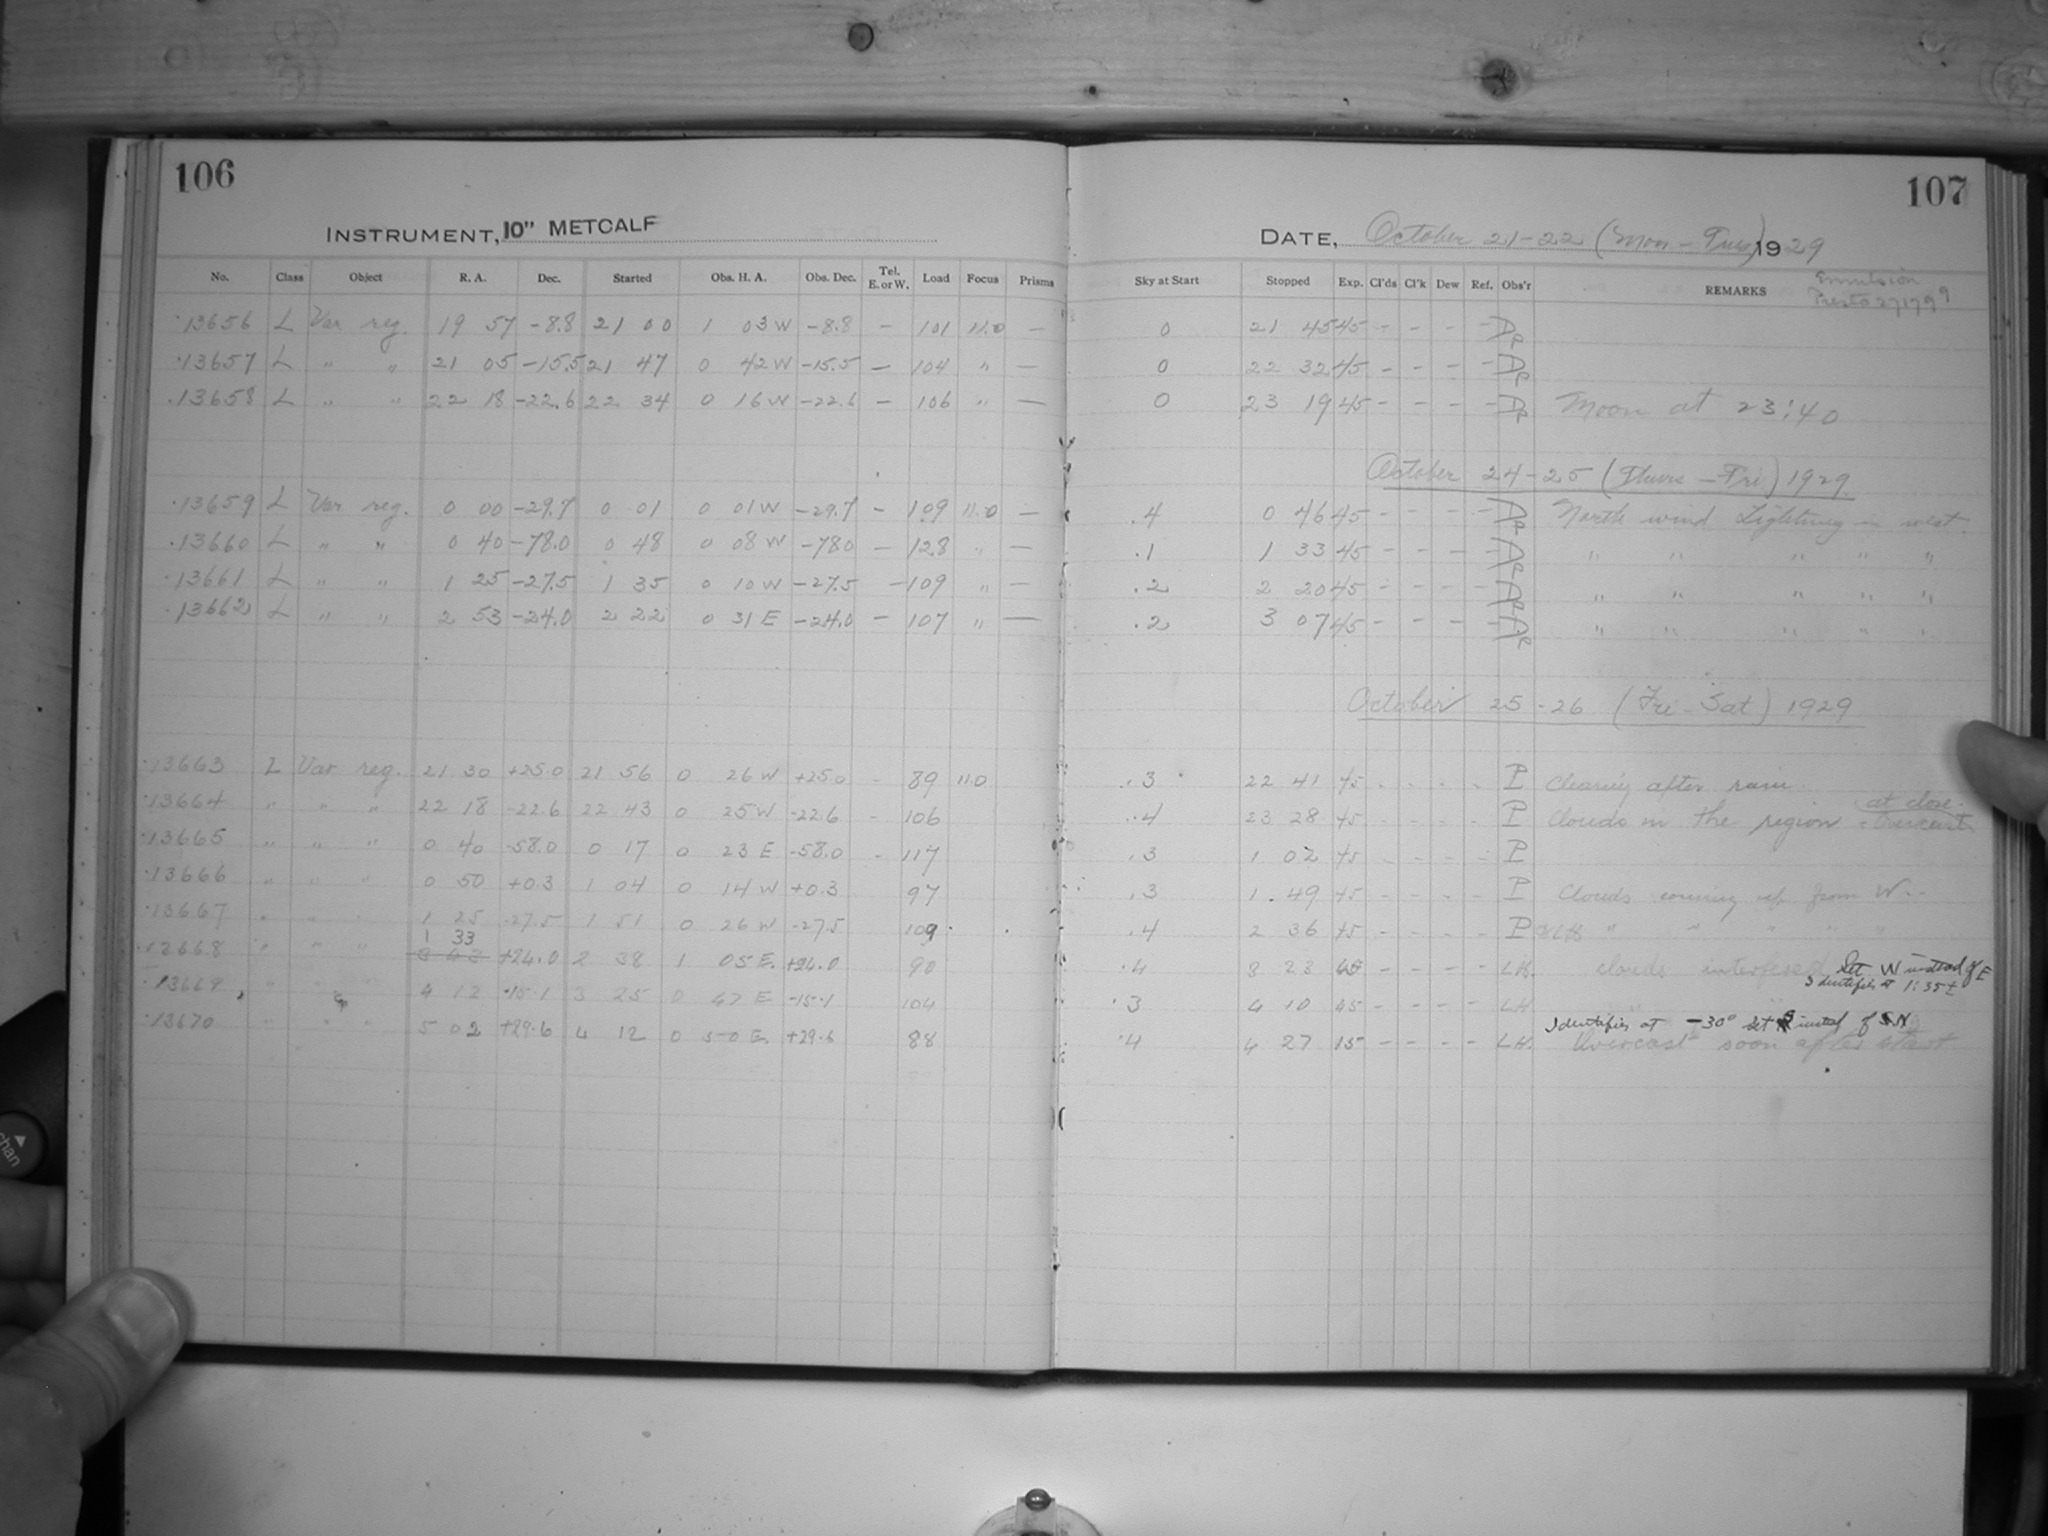 106
INSTRUMENT, 10" METCALF
No. Class Object R. A. Dec. Started Obs. H. A. Obs. Dec. Tel. E. or W. Load Focus Prisms
13656 L Var reg. 19 57 -8.8 21 00 1 03 W -8.8 - 101 11.0 -
13657 L " " 21 05 -15.5 21 47 0 42 W -15.5 - 104 " -
13658 L " " 22 18 -22.6 22 34 0 16 W -22.6 - 106 " -
13659 L Var reg. 0 00 -29.7 0 01 0 01 W -29.7 - 109 11.0 -
13660 L " " 0 40 -78.0 0 48 0 08 W -78.0 - 128 " -
13661 L " " 1 25 -27.5 1 35 0 10 W -27.5 - 109 " -
13662 L " " 2 53 -24.0 2 22 0 31 E -24.0 - 107 " -
13663 L Var reg. 21 30 +25.0 21 56 0 26 W +25.0 - 89 11.0
13664 " " " 22 18 -22.6 22 43 0 25 W -22.6 - 106
13665 " " " 0 40 -58.0 0 17 0 23 E -58.0 - 117
13666 " " " 0 50 +0.3 1 04 0 14 W +0.3 97
13667 " " " 1 25 -27.5 1 51 0 26 W -27.5 109
1 33
13668 " " " 3 43 +24.0 2 38 1 05 E. +24.0 90
13669 " " " 4 12 -15.1 3 25 0 47 E -15.1 104
13670 " " " 5 02 +29.6 4 12 0 50 E. +29.6 88
107
DATE, October 21-22 (Mon-Tues) 1929
Sky at Start Stopped Exp. Cl'ds Cl'k Dew Ref. Obs'r REMARKS Emulsion
Presto 27179
0 21 45 45 - - - - Ap
0 22 32 45 - - - - Ap
0 23 19 45 - - - - Ap Moon at 23:40
October 24-25 (Thurs-Fri) 1929
.4 0 46 45 - - - - Ap North wind Lightning in west
.1 1 33 45 - - - - Ap " " " " "
.2 2 20 45 - - - - Ap " " " " "
.2 3 07 45 - - - - Ap " " " " "
October 25-26 (Fri-Sat) 1929
.3 22 41 45 - - - - P Clearing after rain
.4 23 28 45 - - - - P Clouds in the region Overcast at close.
.3 1 02 45 - - - - P
.3 1 49 45 - - - - P Clouds coming up from W.
.4 2 36 45 - - - - P " " " " "
.4 3 23 45 - - - - LH. clouds interfered Set W instead of E
Identifies at 1:35±
.3 4 10 45 - - - - LH
Identifies at -30° set S instead of N
.4 4 27 15 - - - - LH. Overcast soon after start